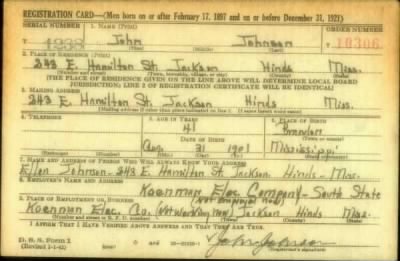 REGISTRATION CARD—(Men born on or after February 17, 1897 and on or before December 31, 1921)
SERIAL NUMBER 1. NAME (Print) ORDER NUMBER
John Johnson 10306
(First) (Middle) (Last)
2. PLACE OF RESIDENCE (Print)
243 E. Hamilton St. Jackson Hinds Miss.
(Number and street) (Town, township, village, or city) (County) (State)
[THE PLACE OF RESIDENCE GIVEN ON THE LINE ABOVE WILL DETERMINE LOCAL BOARD
JURISDICTION; LINE 2 OF REGISTRATION CERTIFICATE WILL BE IDENTICAL]
3. MAILING ADDRESS
243 E. Hamilton St. Jackson Hinds Miss.
[Mailing address if other than place indicated on line 2. If same insert word same]
4. TELEPHONE 5. AGE IN YEARS 6. PLACE OF BIRTH
41 Brandon
DATE OF BIRTH (Town or county)
Aug. 31 1901 Mississippi
(Exchange) (Number) (Mo.) (Day) (Yr.) (State or country)
7. NAME AND ADDRESS OF PERSON WHO WILL ALWAYS KNOW YOUR ADDRESS
Ellen Johnson - 243 E. Hamilton St. Jackson, Hinds - Miss.
8. EMPLOYER'S NAME AND ADDRESS
Koenman Elec. Company - South State
(Not employed now)
9. PLACE OF EMPLOYMENT OR BUSINESS
Koenman Elec. Co. (Not working now) Jackson Hinds Miss.
(Number and street or R. F. D. number) (Town) (County) (State)
I AFFIRM THAT I HAVE VERIFIED ABOVE ANSWERS AND THAT THEY ARE TRUE.
D. S. S. Form 1
(Revised 1-1-42) John Johnson